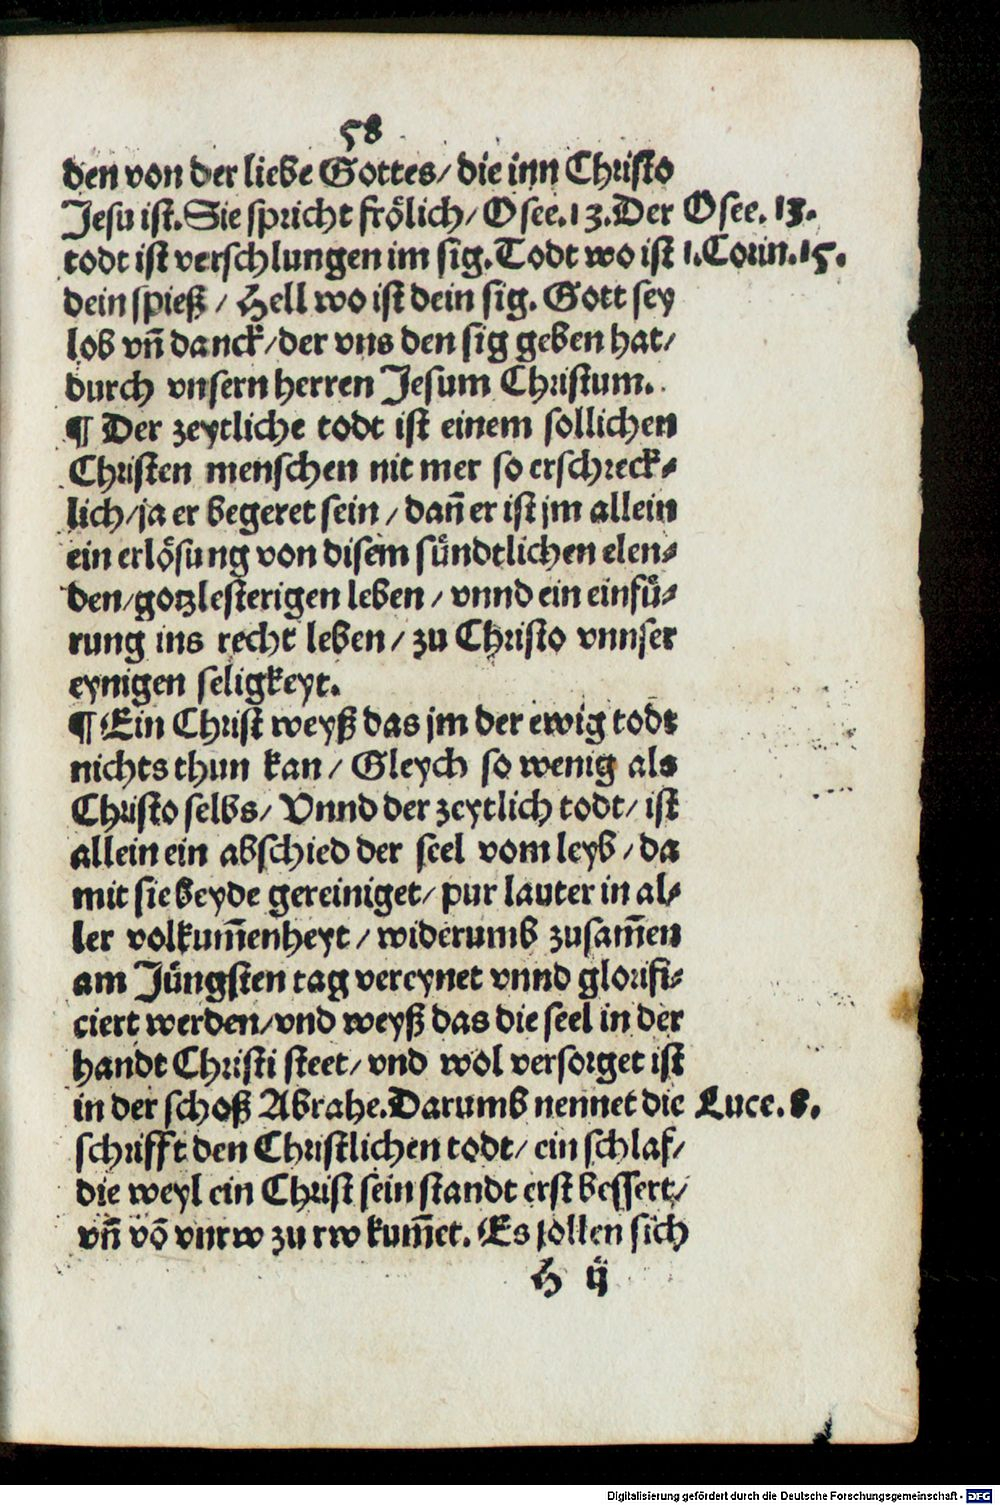 58
den von der liebe Gottes/ die inn Christo
Jesu ist. Sie spricht frölich/ Osee.13. Der Osee. 13.
todt ist verschlungen im sig. Todt wo ist 1.Corin.15.
dein spieß / Hell wo ist dein sig. Gott sey
lob vñ danck/ der vns den sig geben hat/
durch vnsern herren Jesum Christum.
¶ Der zeytliche todt ist einem sollichen
Christen menschen nit mer so erschreck⸗
lich/ ja er begeret sein / dañ er ist jm allein
ein erlösung von disem sündtlichen elen⸗
den/ gotzlesterigen leben / vnnd ein einfü⸗
rung ins recht leben / zu Christo vnnser
eynigen seligkeyt.
¶ Ein Christ weyß das jm der ewig todt
nichts thun kan / Gleych so wenig als
Christo selbs/ Vnnd der zeytlich todt/ ist
allein ein abschied der seel vom leyb / da
mit sie beyde gereiniget/ pur lauter in al⸗
ler volkum̄enheyt / widerumb zusam̄en
am Jüngsten tag vereynet vnnd glorifi⸗
ciert werden/ vnd weyß das die seel in der
handt Christi steet/ vnd wol versorget ist
in der schoß Abrahe. Darumb nennet die Luce. 8.
schrifft den Christlichen todt/ ein schlaf/
die weyl ein Christ sein standt erst bessert/
vñ võ vnrw zu rw kum̄et. Es sollen sich
H ij
Digitalisierung gefördert durch die Deutsche Forschungsgemeinschaft - DFG